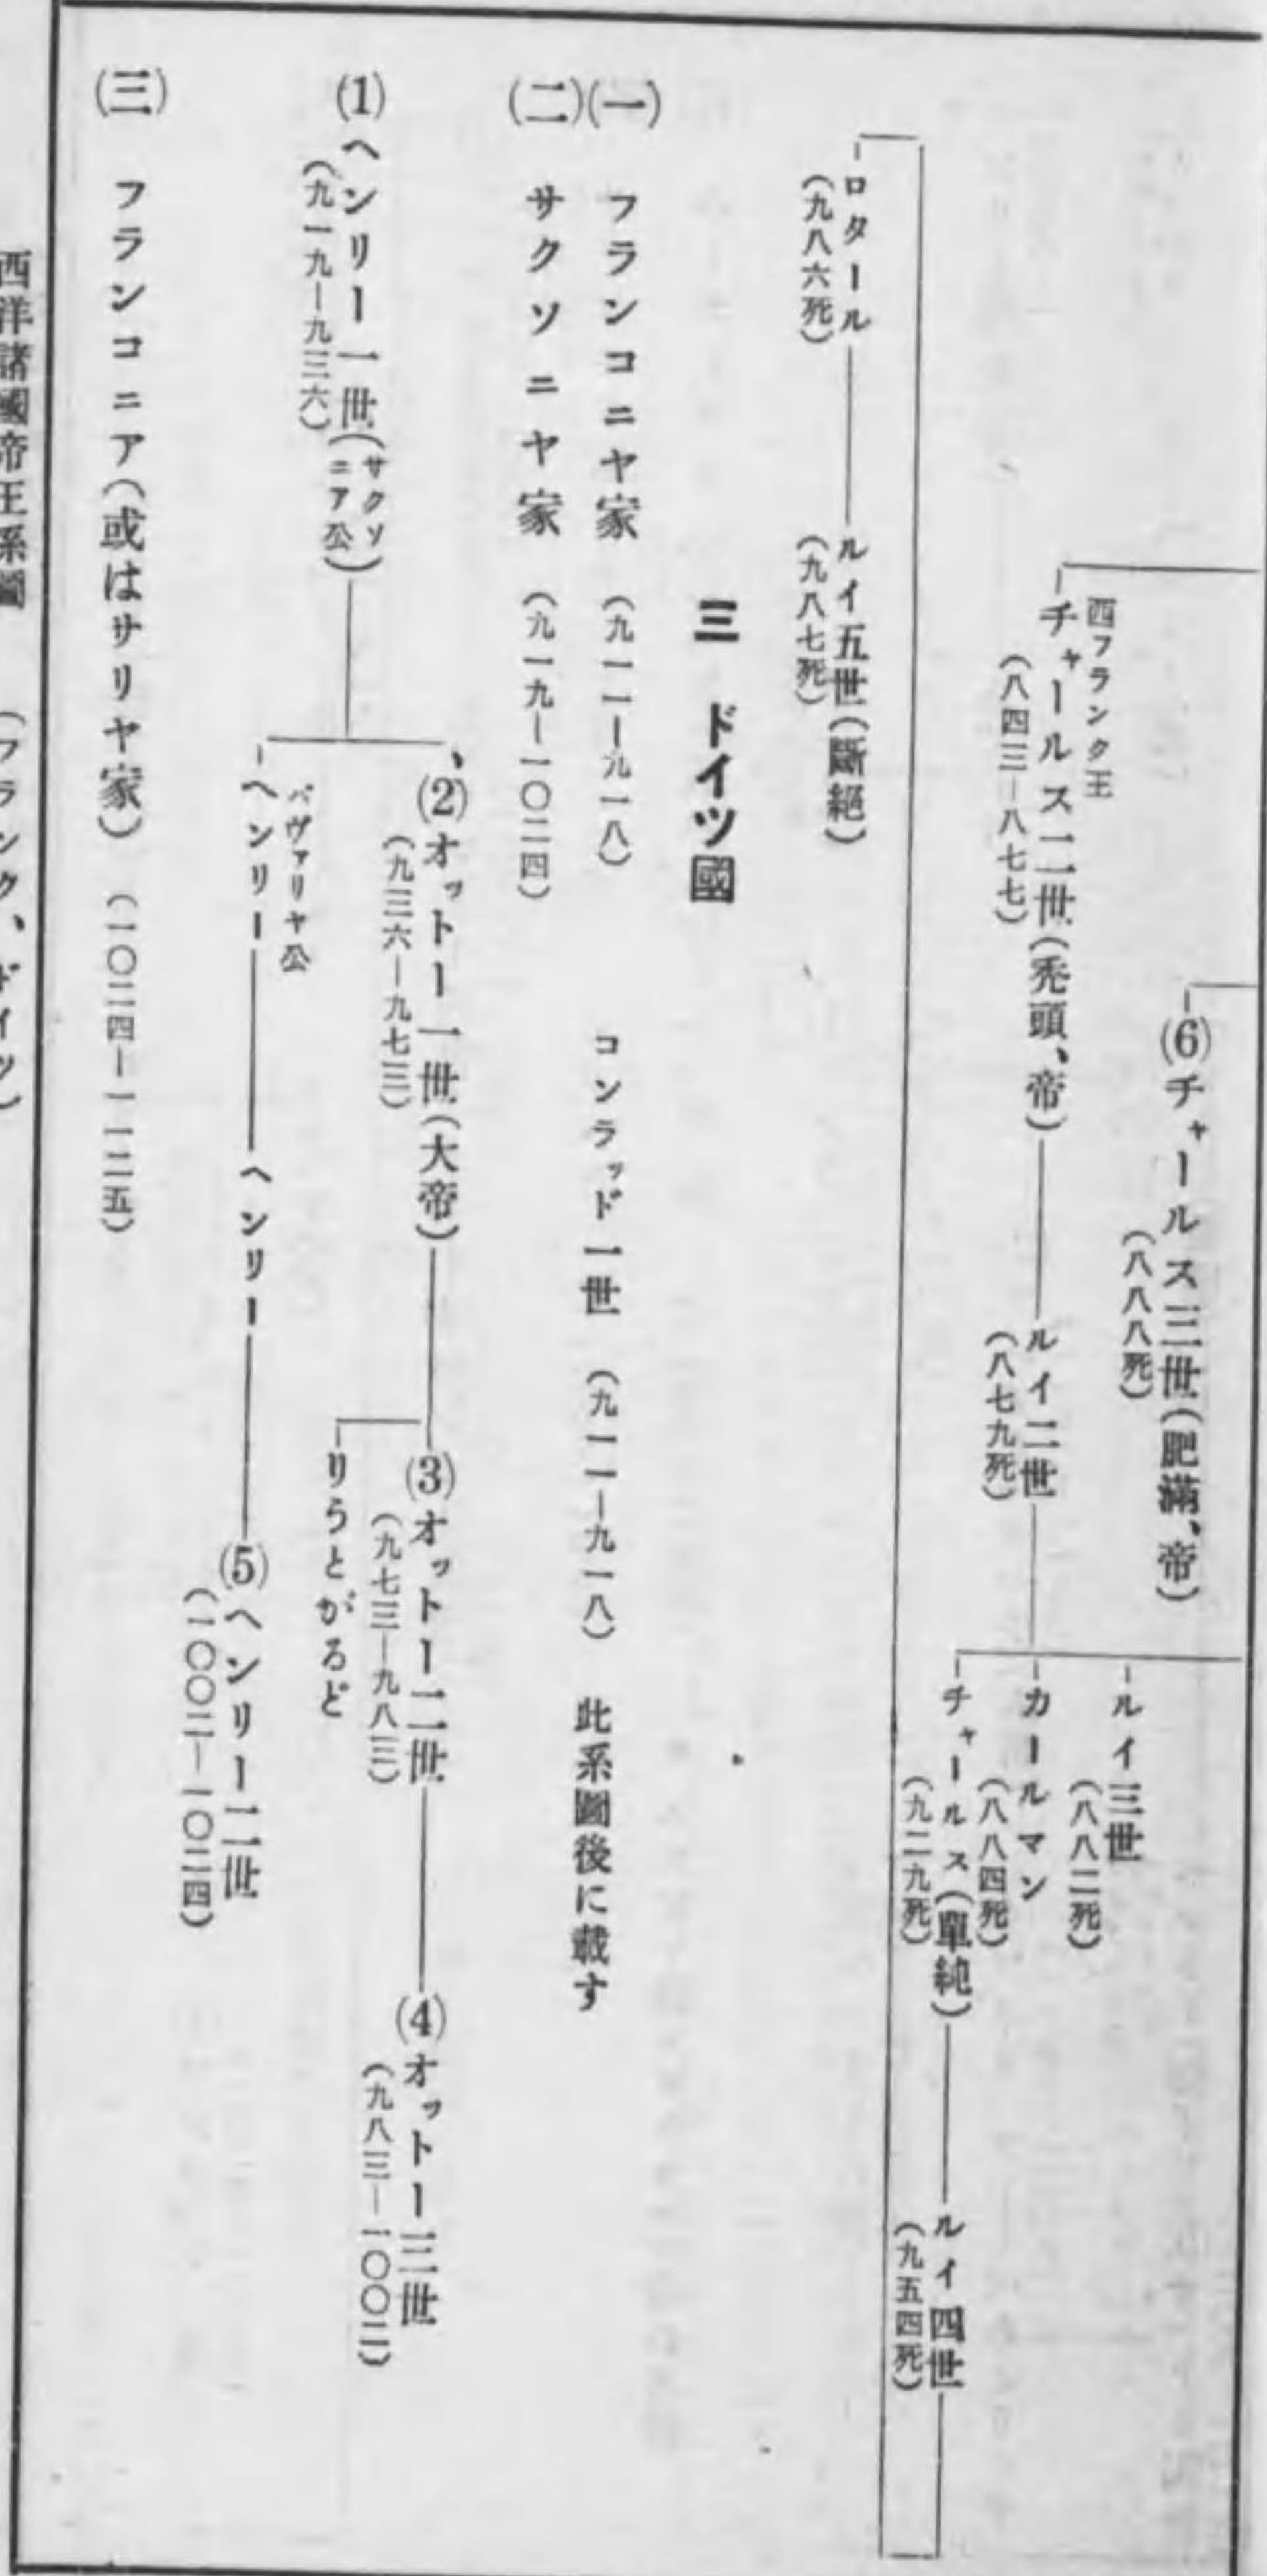 (6)チャールス三世(肥滿、帝)
(八八八死)
西フランク王
チャールス二世(禿頭、帝)
(八四三―八七七)
ルイ二世
(八七九死)
ルイ三世
(八八二死)
カールマン
(八八四死)
チャールス(單純)
(九二九死)
ルイ四世
(九五四死)
ロタール
(九八六死)
ルイ五世(斷絕)
(九八七死)
三 ドイツ國
(一) フランコニヤ家 (九一一―九一八) コンラッド一世 (九一一―九一八) 此系圖後に載す
(二) サクソニヤ家 (九一九―一〇二四)
(1)ヘンリー一世(サクソニア公)
(九一九―九三六)
(2)オットー一世(大帝)
(九三六―九七三)
(3)オットー二世
(九七三―九八三)
(4)オットー三世
(九八三―一〇〇二)
りうとがるど
バヴァリヤ公
ヘンリー
ヘンリー
(5)ヘンリー二世
(一〇〇二―一〇二四)
(三) フランコニア(或はサリヤ家) (一〇二四―一一二五)
西洋諸國帝王系圖 (フランク、ドイツ)